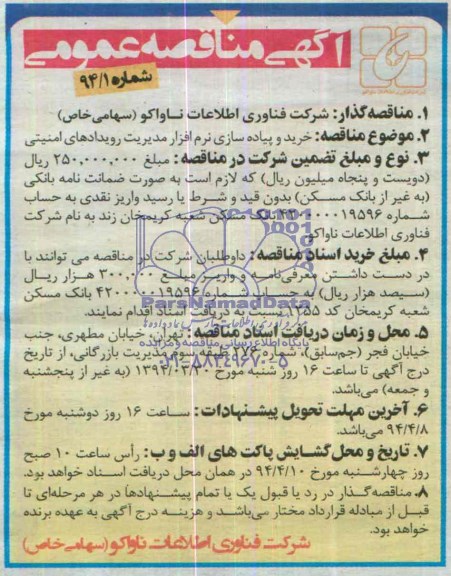 آگهی مناقصه عمومی
شماره ۹۴/۱
۱. مناقصه‌گذار: شرکت فناوری اطلاعات ناواکو (سهامی خاص)
۲. موضوع مناقصه: خرید و پیاده سازی نرم افزار مدیریت رویدادهای امنیتی
۳. نوع و مبلغ تضمین شرکت در مناقصه: مبلغ ۲۵۰,۰۰۰,۰۰۰ ریال
(دویست و پنجاه میلیون ریال) که لازم است به صورت ضمانت نامه بانکی
(به غیر از بانک مسکن) بدون قید و شرط یا رسید واریز نقدی به حساب
شماره ۴۲۰۰۰۰۰۱۹۵۹۶ بانک مسکن شعبه کریمخان زند به نام شرکت
فناوری اطلاعات ناواکو
۴. مبلغ خرید اسناد مناقصه: داوطلبان شرکت در مناقصه می توانند با
در دست داشتن معرفی‌نامه و واریز مبلغ ۳۰۰,۰۰۰ هزار ریال
(سیصد هزار ریال) به حساب شماره ۴۲۰۰۰۰۰۱۹۵۹۶ بانک مسکن
شعبه کریمخان کد ۱۵۵ نسبت به دریافت اسناد اقدام نمایند.
ParsNamadData
پایگاه اطلاع رسانی مناقصه و مزایده
۵. محل و زمان دریافت اسناد مناقصه: تهران، خیابان مطهری، جنب
خیابان فجر (جم‌سابق)، شماره ۱۷۶ طبقه سوم مدیریت بازرگانی، از تاریخ
۰۲۱-۸۸۳۴۹۶۷۰-۵
درج آگهی تا ساعت ۱۶ روز شنبه مورخ ۱۳۹۴/۰۳/۳۰ (به غیر از پنجشنبه
و جمعه) می‌باشد.
۶. آخرین مهلت تحویل پیشنهادات: ساعت ۱۶ روز دوشنبه مورخ
۹۴/۴/۸ می‌باشد.
۷. تاریخ و محل گشایش پاکت های الف و ب: رأس ساعت ۱۰ صبح
روز چهارشنبه مورخ ۹۴/۴/۱۰ در همان محل دریافت اسناد خواهد بود.
۸. مناقصه‌گذار در رد یا قبول یک یا تمام پیشنهادها در هر مرحله‌ای تا
قبل از مبادله قرارداد مختار می‌باشد و هزینه درج آگهی به عهده برنده
خواهد بود.
شرکت فناوری اطلاعات ناواکو (سهامی خاص)